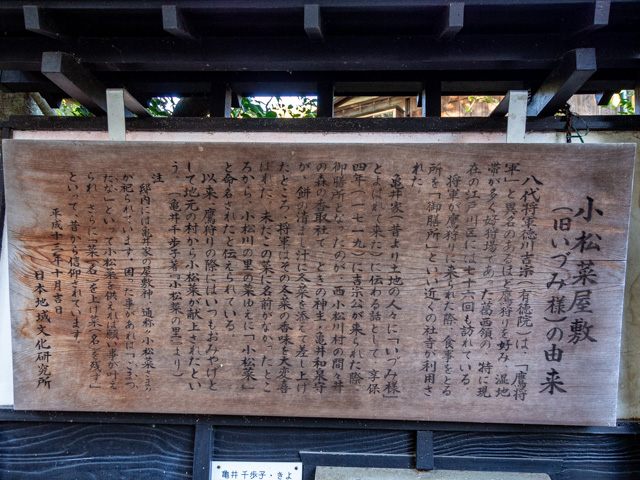 小松菜屋敷
（旧いづみ様）の由来
八代将軍徳川吉宗（有徳院）は、「鷹将
軍」と異名のつくほど鷹狩りを好み、湿地
帯が多く好狩場であった葛西領の、特に現
在の江戸川区には七十六回も訪れている。
将軍が鷹狩りに来られた際、食事をとる
所を「御膳所」といい近くの社寺が利用さ
れた。
亀井家（昔より土地の人々に「いづみ様」
とよばれて来た）に伝わる話として、享保
四年（一七一九）に吉宗公が来られた際、
御膳所となったのが、西小松川村の間々井
の森の香取社で、ときの神主・亀井和泉守
が餅の清まし汁に冬菜を添えて差し上げ
たところ、将軍はその冬菜の香味を大変喜
ばれ、未だこの菜に名前がなかったとこ
ろから、小松川の里の菜ゆえに「小松菜」
と命名されたと伝えられている。
以来、鷹狩りの際にはいつもおみやげと
して地元の村から小松菜が献上されたとい
う。（亀井千歩子著「小松菜の里」より）
注
邸内には亀井家の屋敷神（通称・小松菜さま）
が祀られています。困った事があれば「こまつ
たな」といって小松菜を供えれば願い事が叶え
られ、さらに「菜（名）を上げ、菜（名）を残す」
といって、昔から信仰されています。
平成十三年十月吉日
日本地域文化研究所
亀井 千歩子・きよ